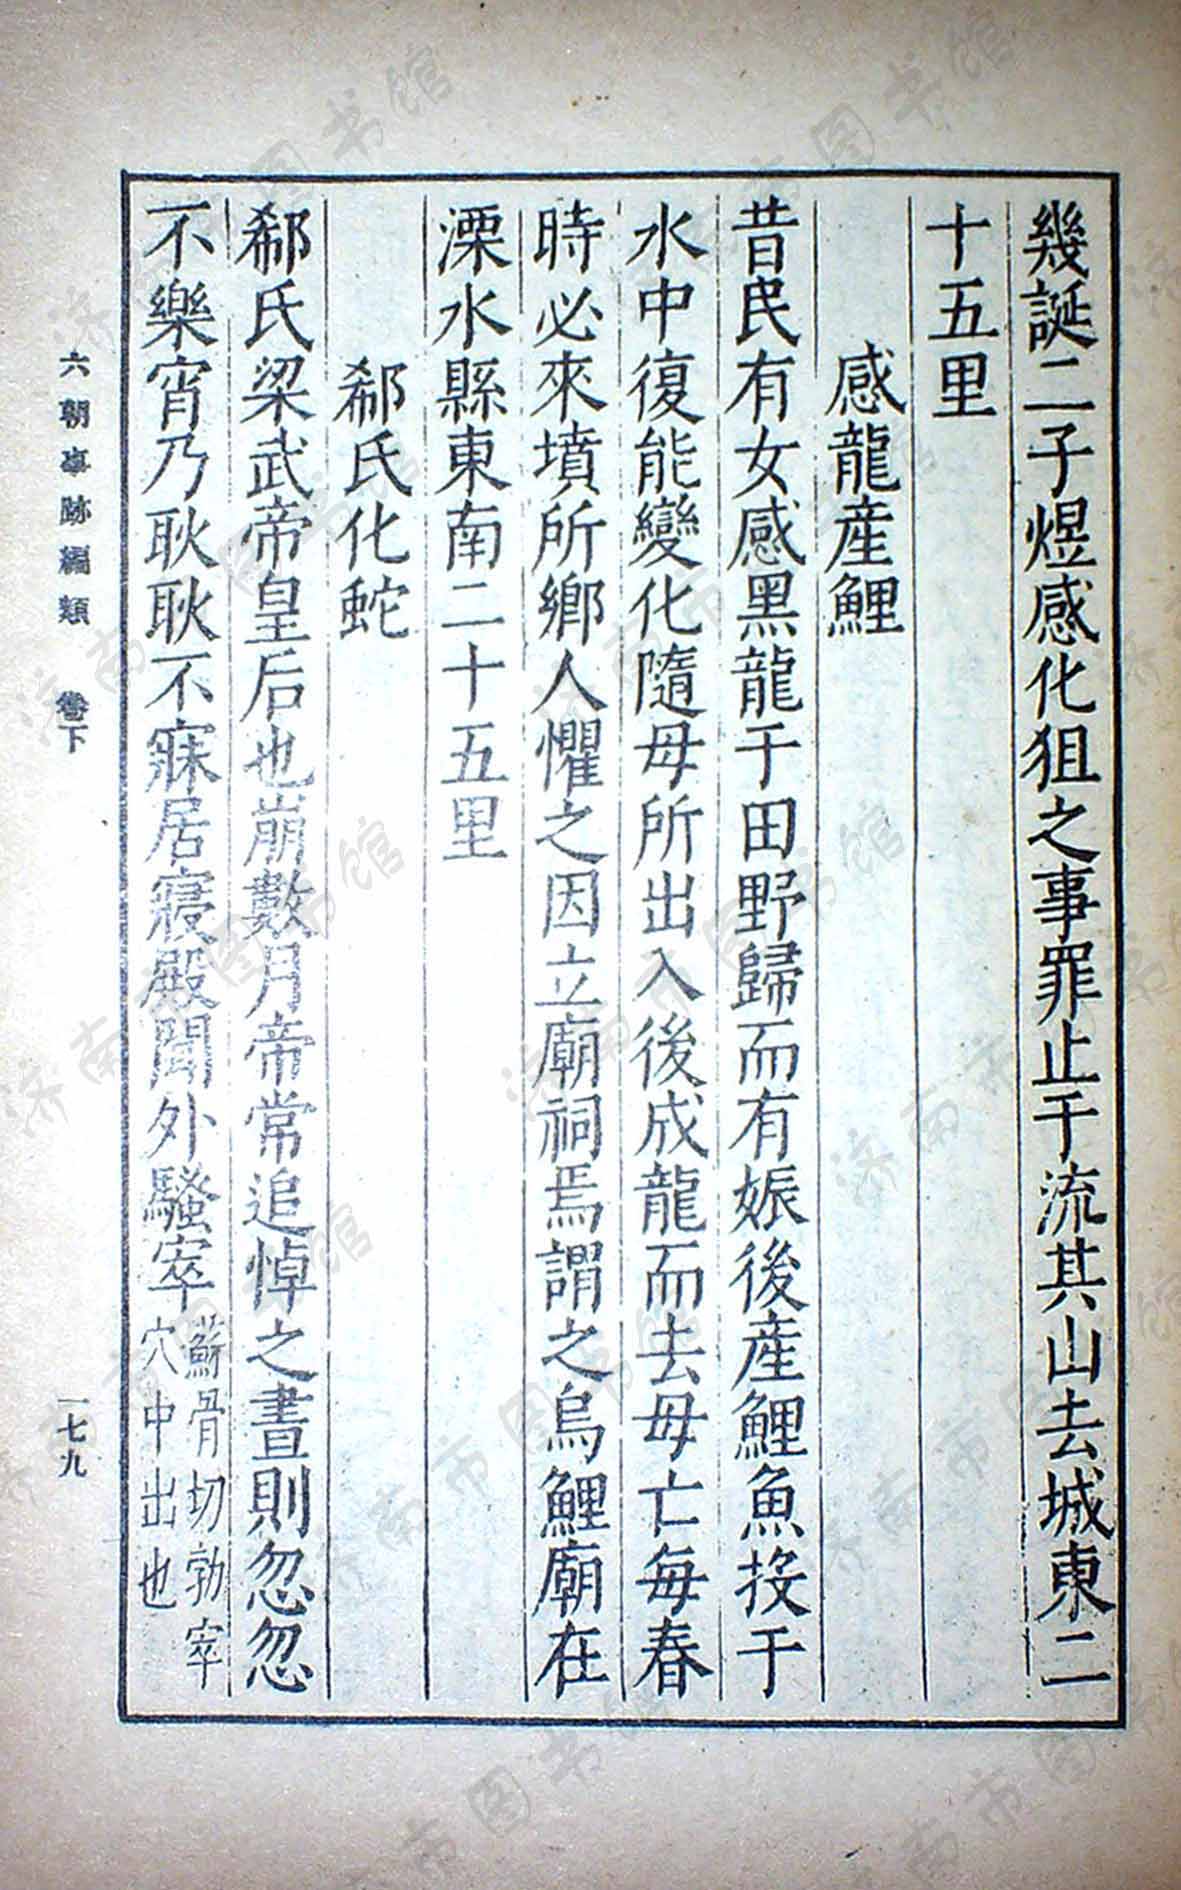 幾誕二子煜感化狙之事罪止于流其山去城東二
十五里
感龍産鯉
昔民有女感黑龍于田野歸而有娠後産鯉魚投于
水中復能變化隨母所出入後成龍而去母亡每春
時必來墳所鄉人懼之因立廟祠焉謂之烏鯉廟在
溧水縣東南二十五里
郗氏化蛇
郗氏梁武帝皇后也崩數月帝常追悼之晝則忽忽
不樂宵乃耿耿不寐居寢殿聞外騷窣蘇骨切勃窣穴中出也
六朝事跡編類 卷下
一七九
济南市图书馆